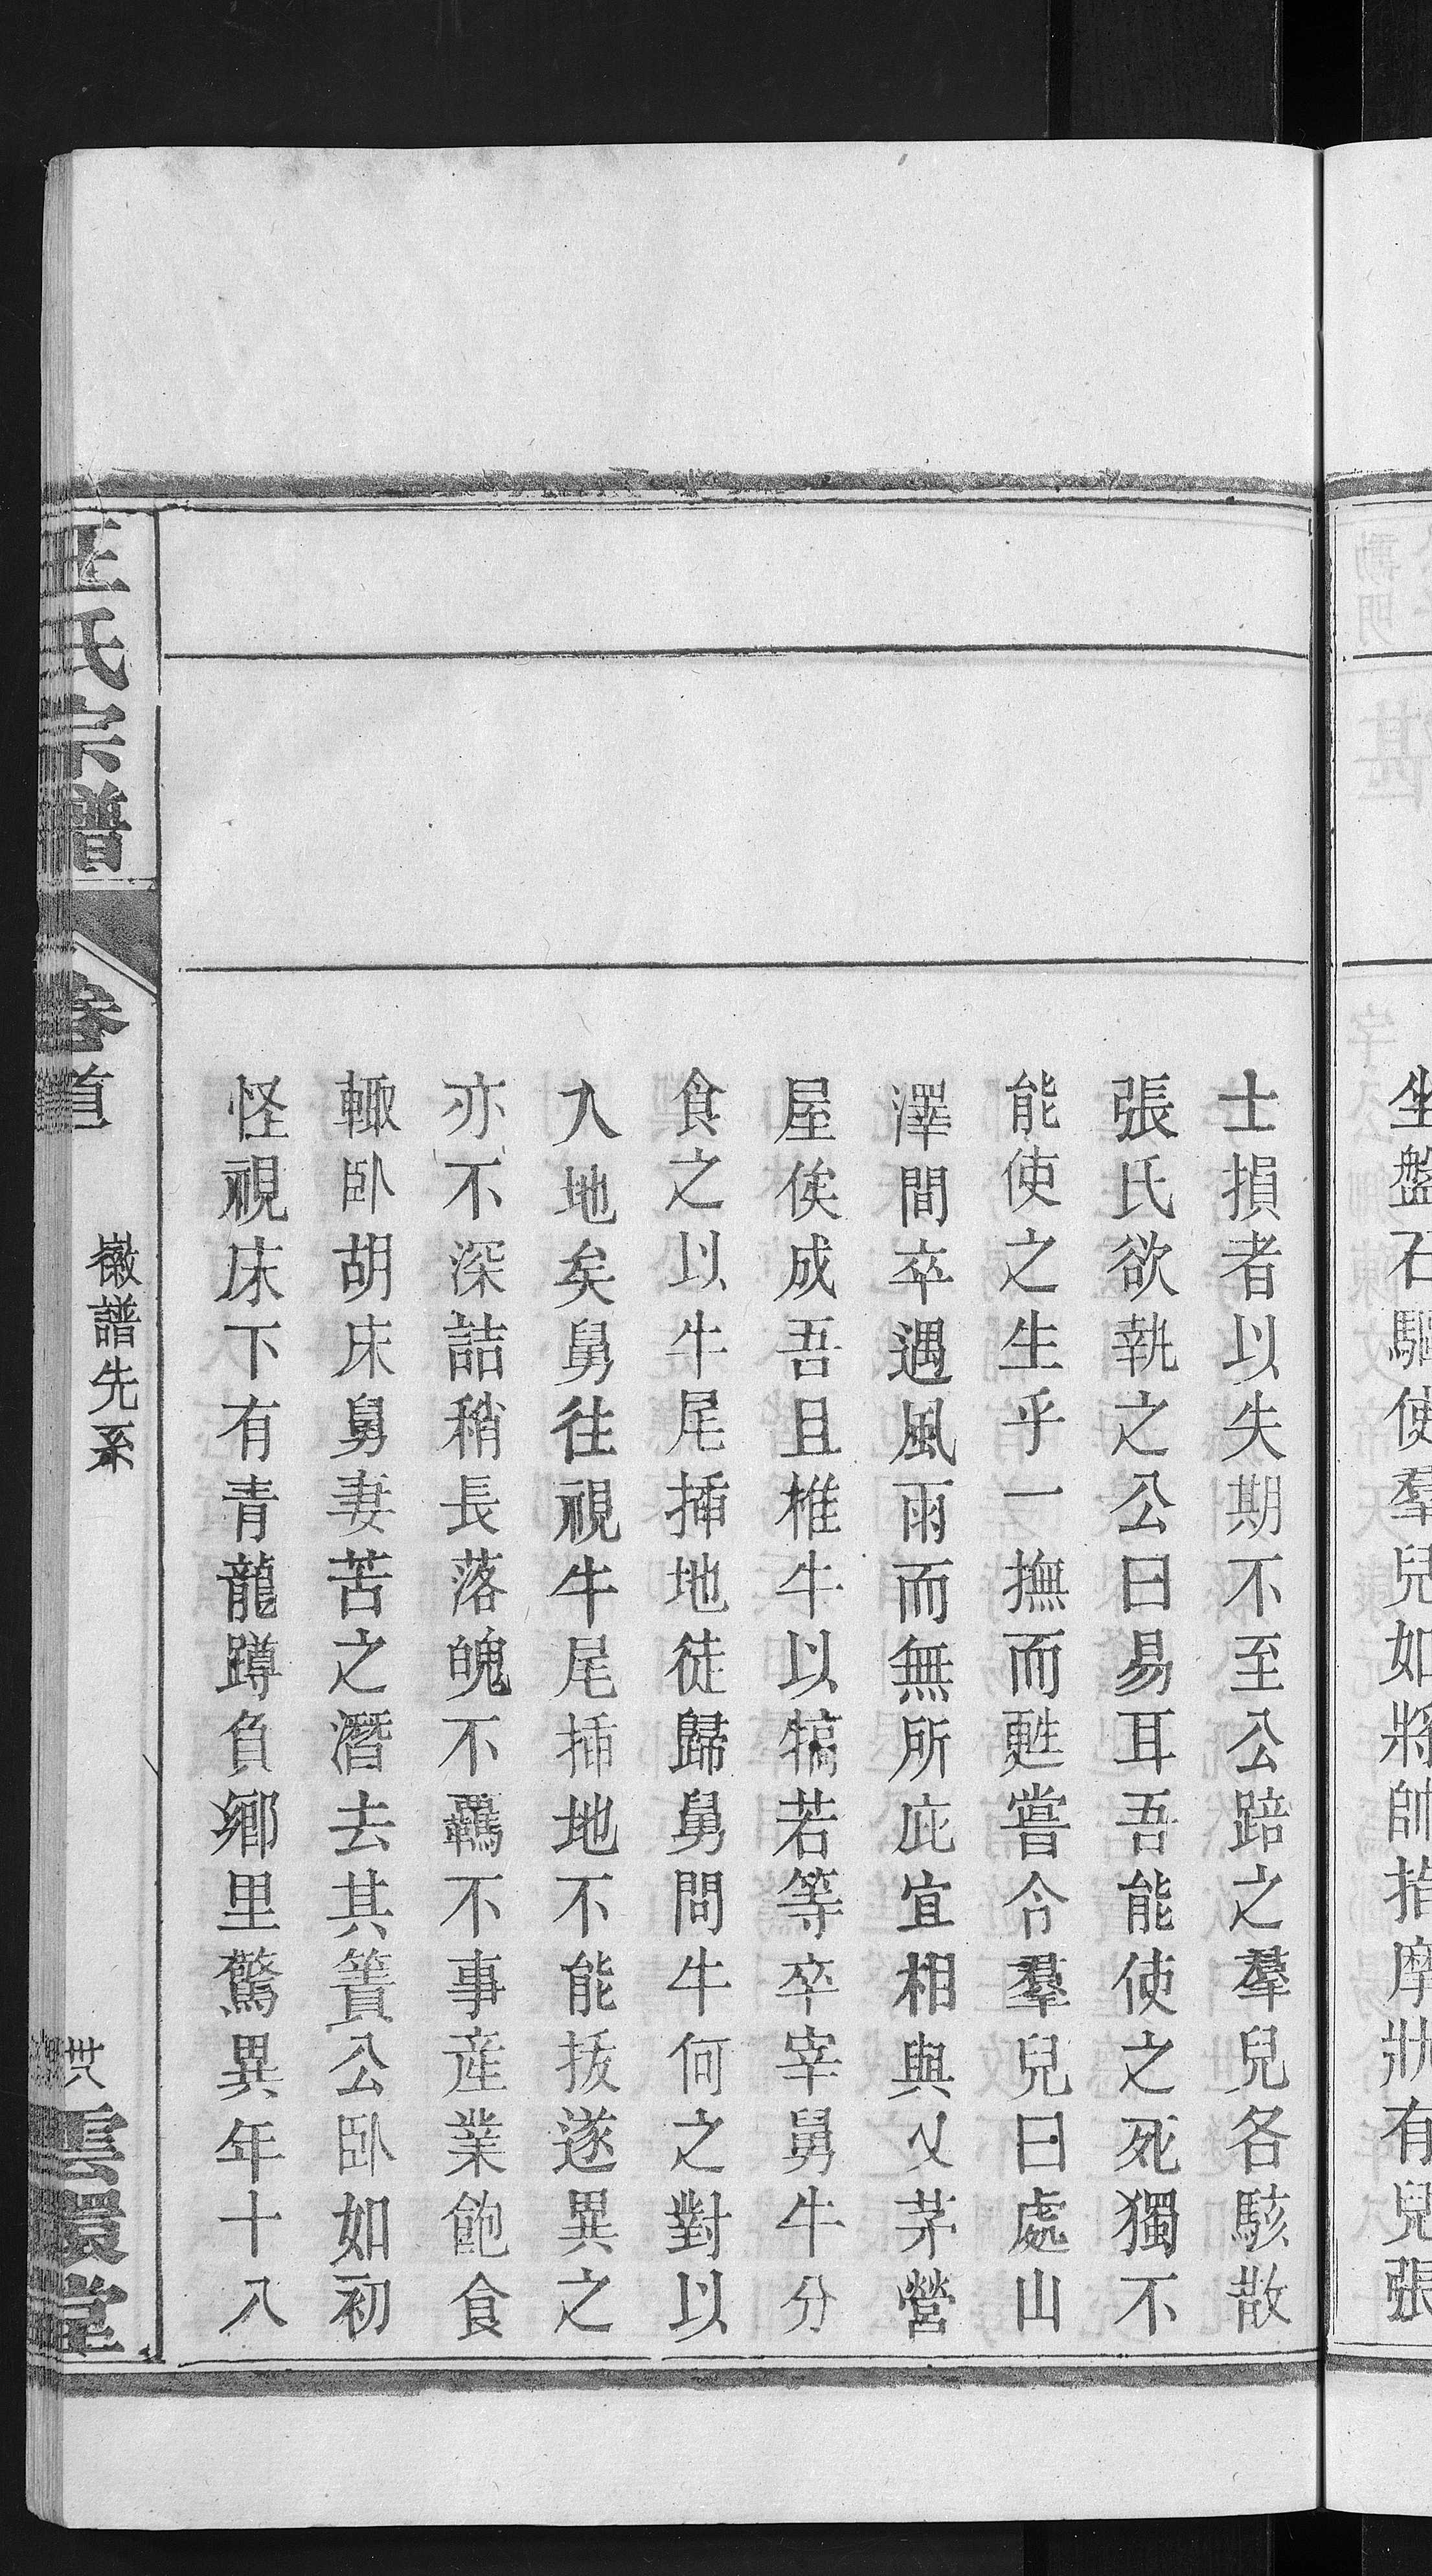 坐盤石驅使羣兒如將帥指摩狀有兒張
士損者以失期不至公踣之羣兒各駭散
張氏欲執之公曰易耳吾能使之死獨不
能使之生乎一撫而甦嘗令羣兒曰處山
澤間卒遇風雨而無所庇宜相與乂茅營
屋俟成吾且椎牛以犒若等卒宰舅牛分
食之以牛尾揷地徒歸舅問牛何之對以
入地矣舅往視牛尾揷地不能拔遂異之
亦不深詰稍長落魄不羈不事産業飽食
輙臥胡床舅妻苦之潛去其簀公臥如初
怪視床下有青龍蹲負鄉里驚異年十八
王氏宗譜
卷首
徽譜先系
堂